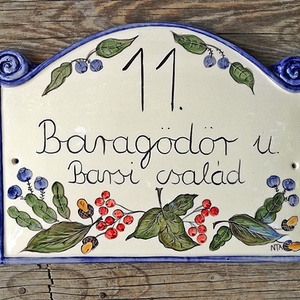 11.
Baragödör u.
Barsi család